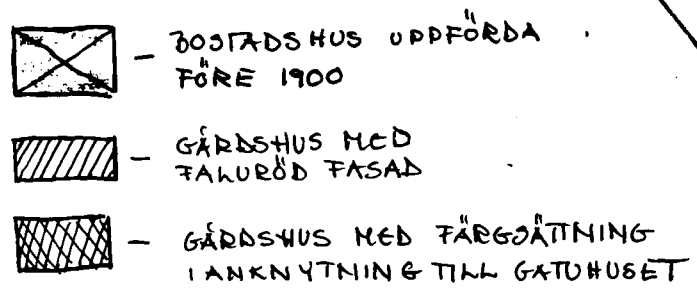 – BOSTADSHUS UPPFÖRDA
FÖRE 1900
– GÅRDSHUS MED
FALURÖD FASAD
– GÅRDSHUS MED FÄRGSÄTTNING
I ANKNYTNING TILL GATUHUSET